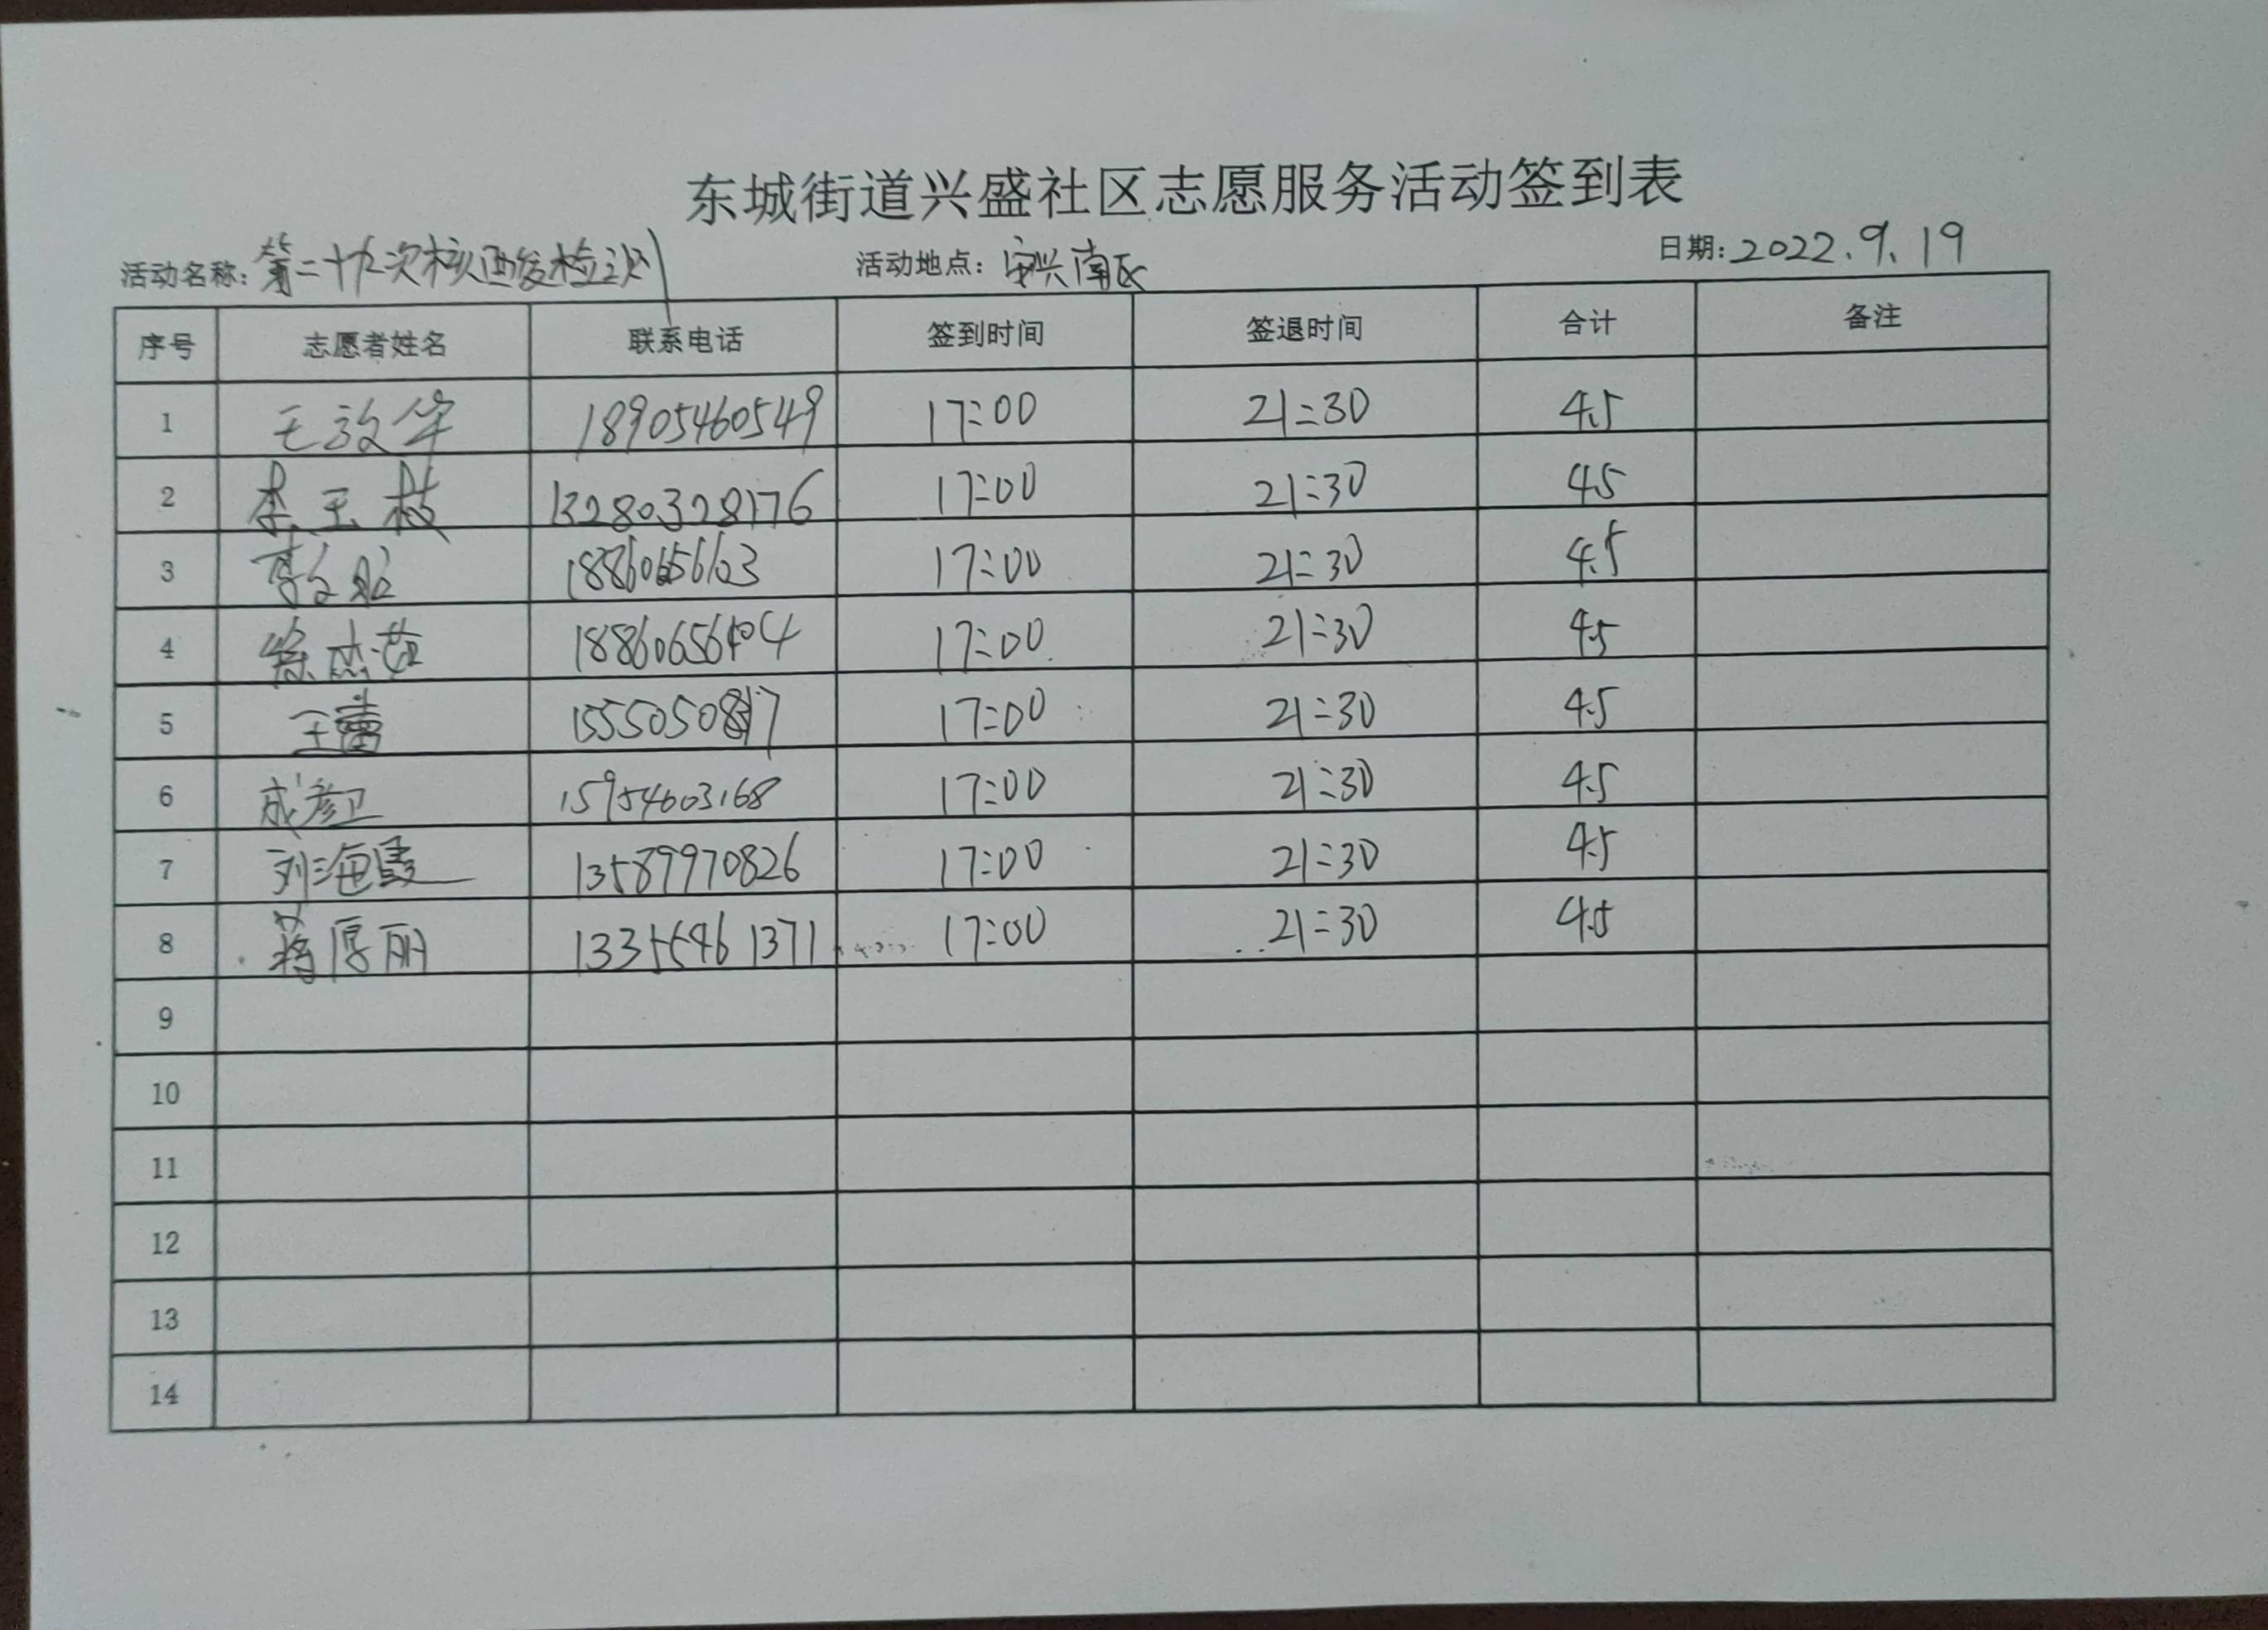 东城街道兴盛社区志愿服务活动签到表
活动名称：第二十九次核酸检测 活动地点：安兴南区 日期：2022.9.19
序号 志愿者姓名 联系电话 签到时间 签退时间 合计 备注
1 18905460549 17:00 21:30 4.5
2 李玉枝 13280328176 17:00 21:30 4.5
3 17:00 21:30 4.5
4 徐杰茹 17:00 21:30 4.5
5 王蕾 17:00 21:30 4.5
6 成彦卫 15954603168 17:00 21:30 4.5
7 刘海霞 13589970826 17:00 21:30 4.5
8 蒋厚丽 13355461371 17:00 21:30 4.5
9
10
11
12
13
14